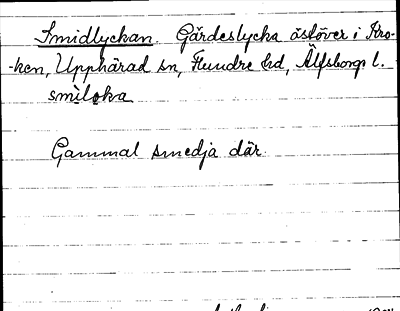 Smidlyckan. Gärdeslycka åstöver i Kro-
-ken, Upphärad sn, Flundre hd, Älfsborgs l.
smìloka
Gammal smedja där.